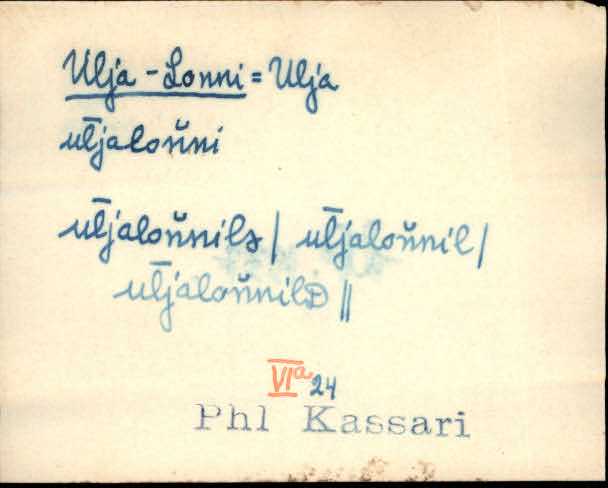 Ulja-Lonni = Ulja
ul̄jalon̆ni
ul̄jalon̆nilɜ | ul̄jalon̆nil |
ul̄jalon̆nilD ||
VIa 24
Phl Kassari